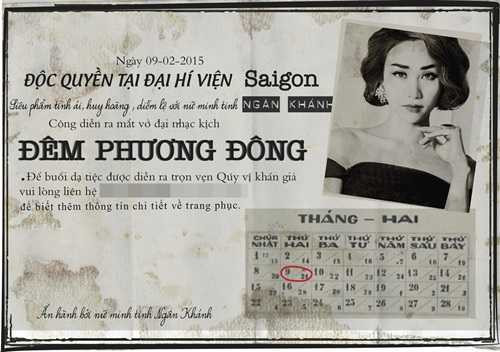 Ngày 09-02-2015
ĐỘC QUYỀN TẠI ĐẠI HÍ VIỆN Saigon
Siêu phẩm tình ái, huy hoàng, diễm lệ với nữ minh tinh NGÂN KHÁNH
Công diễn ra mắt vở đại nhạc kịch
ĐÊM PHƯƠNG ĐÔNG
Để buổi dạ tiệc được diễn ra trọn vẹn Qúy vị khán giả
vui lòng liên hệ
để biết thêm thông tin chi tiết về trang phục.
THÁNG - HAI
CHỦ NHẬT THỨ HAI THỨ BA THỨ TƯ THỨ NĂM THỨ SÁU THỨ BẢY
1 2 3 4 5 6 7
8 9 10 11 12 13 14
15 16 17 18 19 20 21
22 23 24 25 26 27 28
Ấn hành bởi nữ minh tinh Ngân Khánh